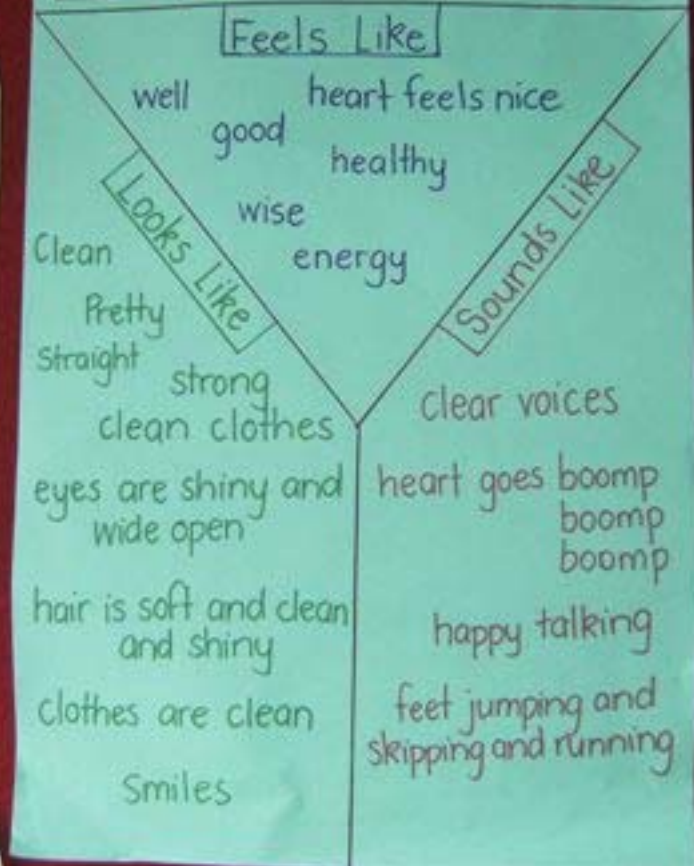 Feels Like
well heart feels nice
good
healthy
wise
energy
Looks Like
Clean
Pretty
Straight
strong
clean clothes
eyes are shiny and
wide open
hair is soft and clean
and shiny
clothes are clean
Smiles
Sounds Like
Clear voices
heart goes boomp
boomp
boomp
happy talking
feet jumping and
skipping and running